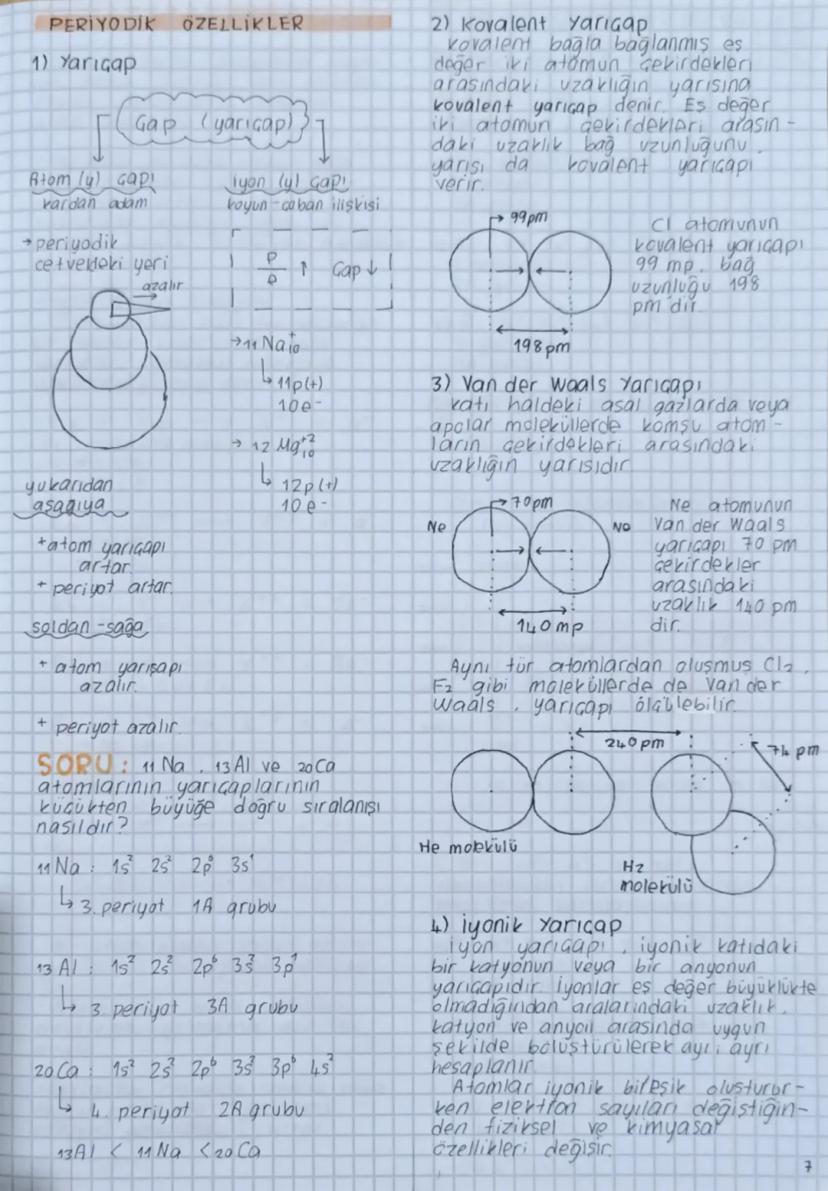 PERİYODİK ÖZELLİKLER
1) Yarıçap
Çap (yarıçap)
Atom (y) Çapı
kardan adam
→ periyodik
cetveldeki yeri
azalır
yukarıdan
aşağıya
+ atom yarıçapı
artar.
+ periyot artar.
soldan-sağa
+ atom yarıçapı
azalır.
+ periyot azalır.
İyon (y) Çapı
koyun-çoban ilişkisi
p/e ↑ Çap ↓
→ ₁₁Na⁺₁₀
↳ 11p(+)
10e⁻
→ ₁₂Mg⁺²₁₀
↳ 12p(+)
10e⁻
SORU: ₁₁Na, ₁₃Al ve ₂₀Ca
atomlarının yarıçaplarının
küçükten büyüğe doğru sıralanışı
nasıldır?
₁₁Na: 1s² 2s² 2p⁶ 3s¹
↳ 3. periyot 1A grubu
₁₃Al: 1s² 2s² 2p⁶ 3s² 3p¹
↳ 3. periyot 3A grubu
₂₀Ca: 1s² 2s² 2p⁶ 3s² 3p⁶ 4s²
↳ 4. periyot 2A grubu
₁₃Al < ₁₁Na < ₂₀Ca
2) Kovalent Yarıçap
Kovalent bağla bağlanmış eş
değer iki atomun çekirdekleri
arasındaki uzaklığın yarısına
kovalent yarıçap denir. Eş değer
iki atomun çekirdekleri arasın-
daki uzaklık bağ uzunluğunu,
yarısı da kovalent yarıçapı
verir.
99pm
198pm
Cl atomunun
kovalent yarıçapı
99 mp, bağ
uzunluğu 198
pm'dir.
3) Van der Waals Yarıçapı
Katı haldeki asal gazlarda veya
apolar moleküllerde komşu atom-
ların çekirdekleri arasındaki
uzaklığın yarısıdır.
70pm
Ne
Ne
140mp
Ne atomunun
Van der Waals
yarıçapı 70 pm
çekirdekler
arasındaki
uzaklık 140 pm
dir.
Aynı tür atomlardan oluşmuş Cl₂,
F₂ gibi moleküllerde de Van der
Waals, yarıçapı ölçülebilir.
240pm
74 pm
He molekülü
H₂
molekülü
4) İyonik Yarıçap
İyon yarıçapı, iyonik katıdaki
bir katyonun veya bir anyonun
yarıçapıdır. İyonlar eş değer büyüklükte
olmadığından aralarındaki uzaklık,
katyon ve anyon arasında uygun
şekilde bölüştürülerek ayrı ayrı
hesaplanır.
Atomlar iyonik bileşik oluşturur-
ken elektron sayıları değiştiğin-
den fiziksel ve kimyasal
özellikleri değişir.
7